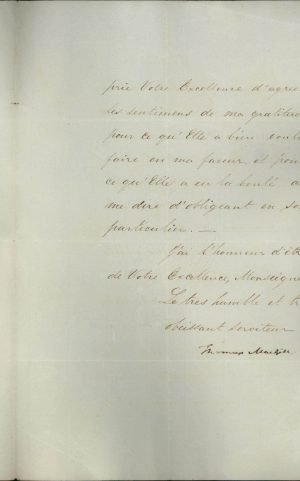 prie Votre Excellence d'agrée
les sentimens de ma gratitud
pour ce qu'Elle a bien voul
faire en ma faveur, et pou
ce qu'Elle a eu la bonté d
me dire d'obligeant en so
particulier. —
J'ai l'honneur d'êt
de Votre Excellence, Monseigne
Le très humble et t
obéissant serviteur